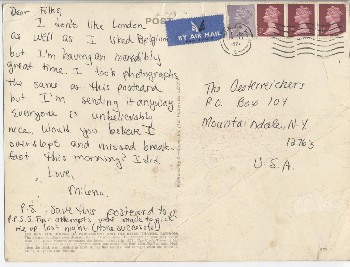 Dear Folks,
I don't like London
as well as I liked Belgium
but I'm having an incredibly
great time. I took photographs
the same as this postcard
but I'm sending it anyway
Everyone is unbelievably
nice. Would you believe I
overslept and missed break-
fast this morning? I did.
Love,
Milena
P.S. Save this postcard to
P.S.S. Two attempts were made to
me up last night (None successful)
POST
BY AIR MAIL
The Oesterreichers
P.O. Box 107
Mountaindale, N.Y.
12763
U.S.A.